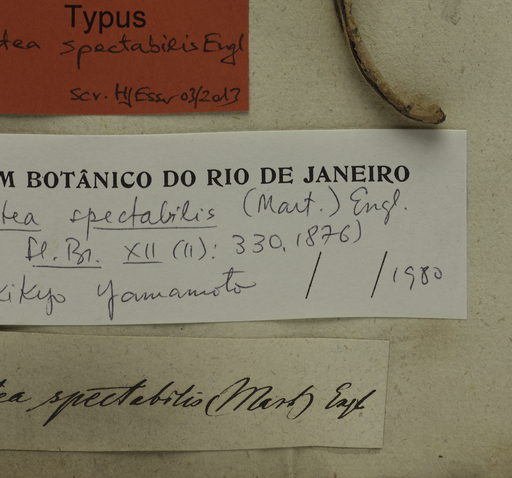 Typus
tea spectabilis Engl
scr. HJEsser 03/2013
M BOTÂNICO DO RIO DE JANEIRO
tea spectabilis (Mart.) Engl.
Fl. Br. XII (II): 330, 1876)
kikyo Yamamoto / / 1980
ea spectabilis (Mart) Engl